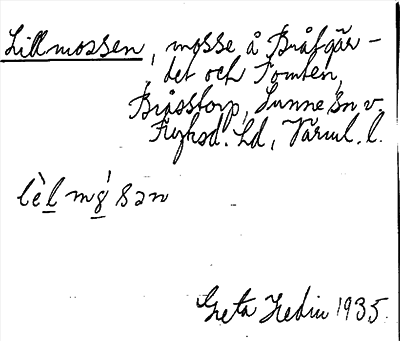 Lillmossen, mosse å Bråfgår-
det och Tomten,
Bråsstorp, Sunne sn v.
Fryksd. hd, Värml. l.
lèl mǫ́sən
Greta Hedin 1935.